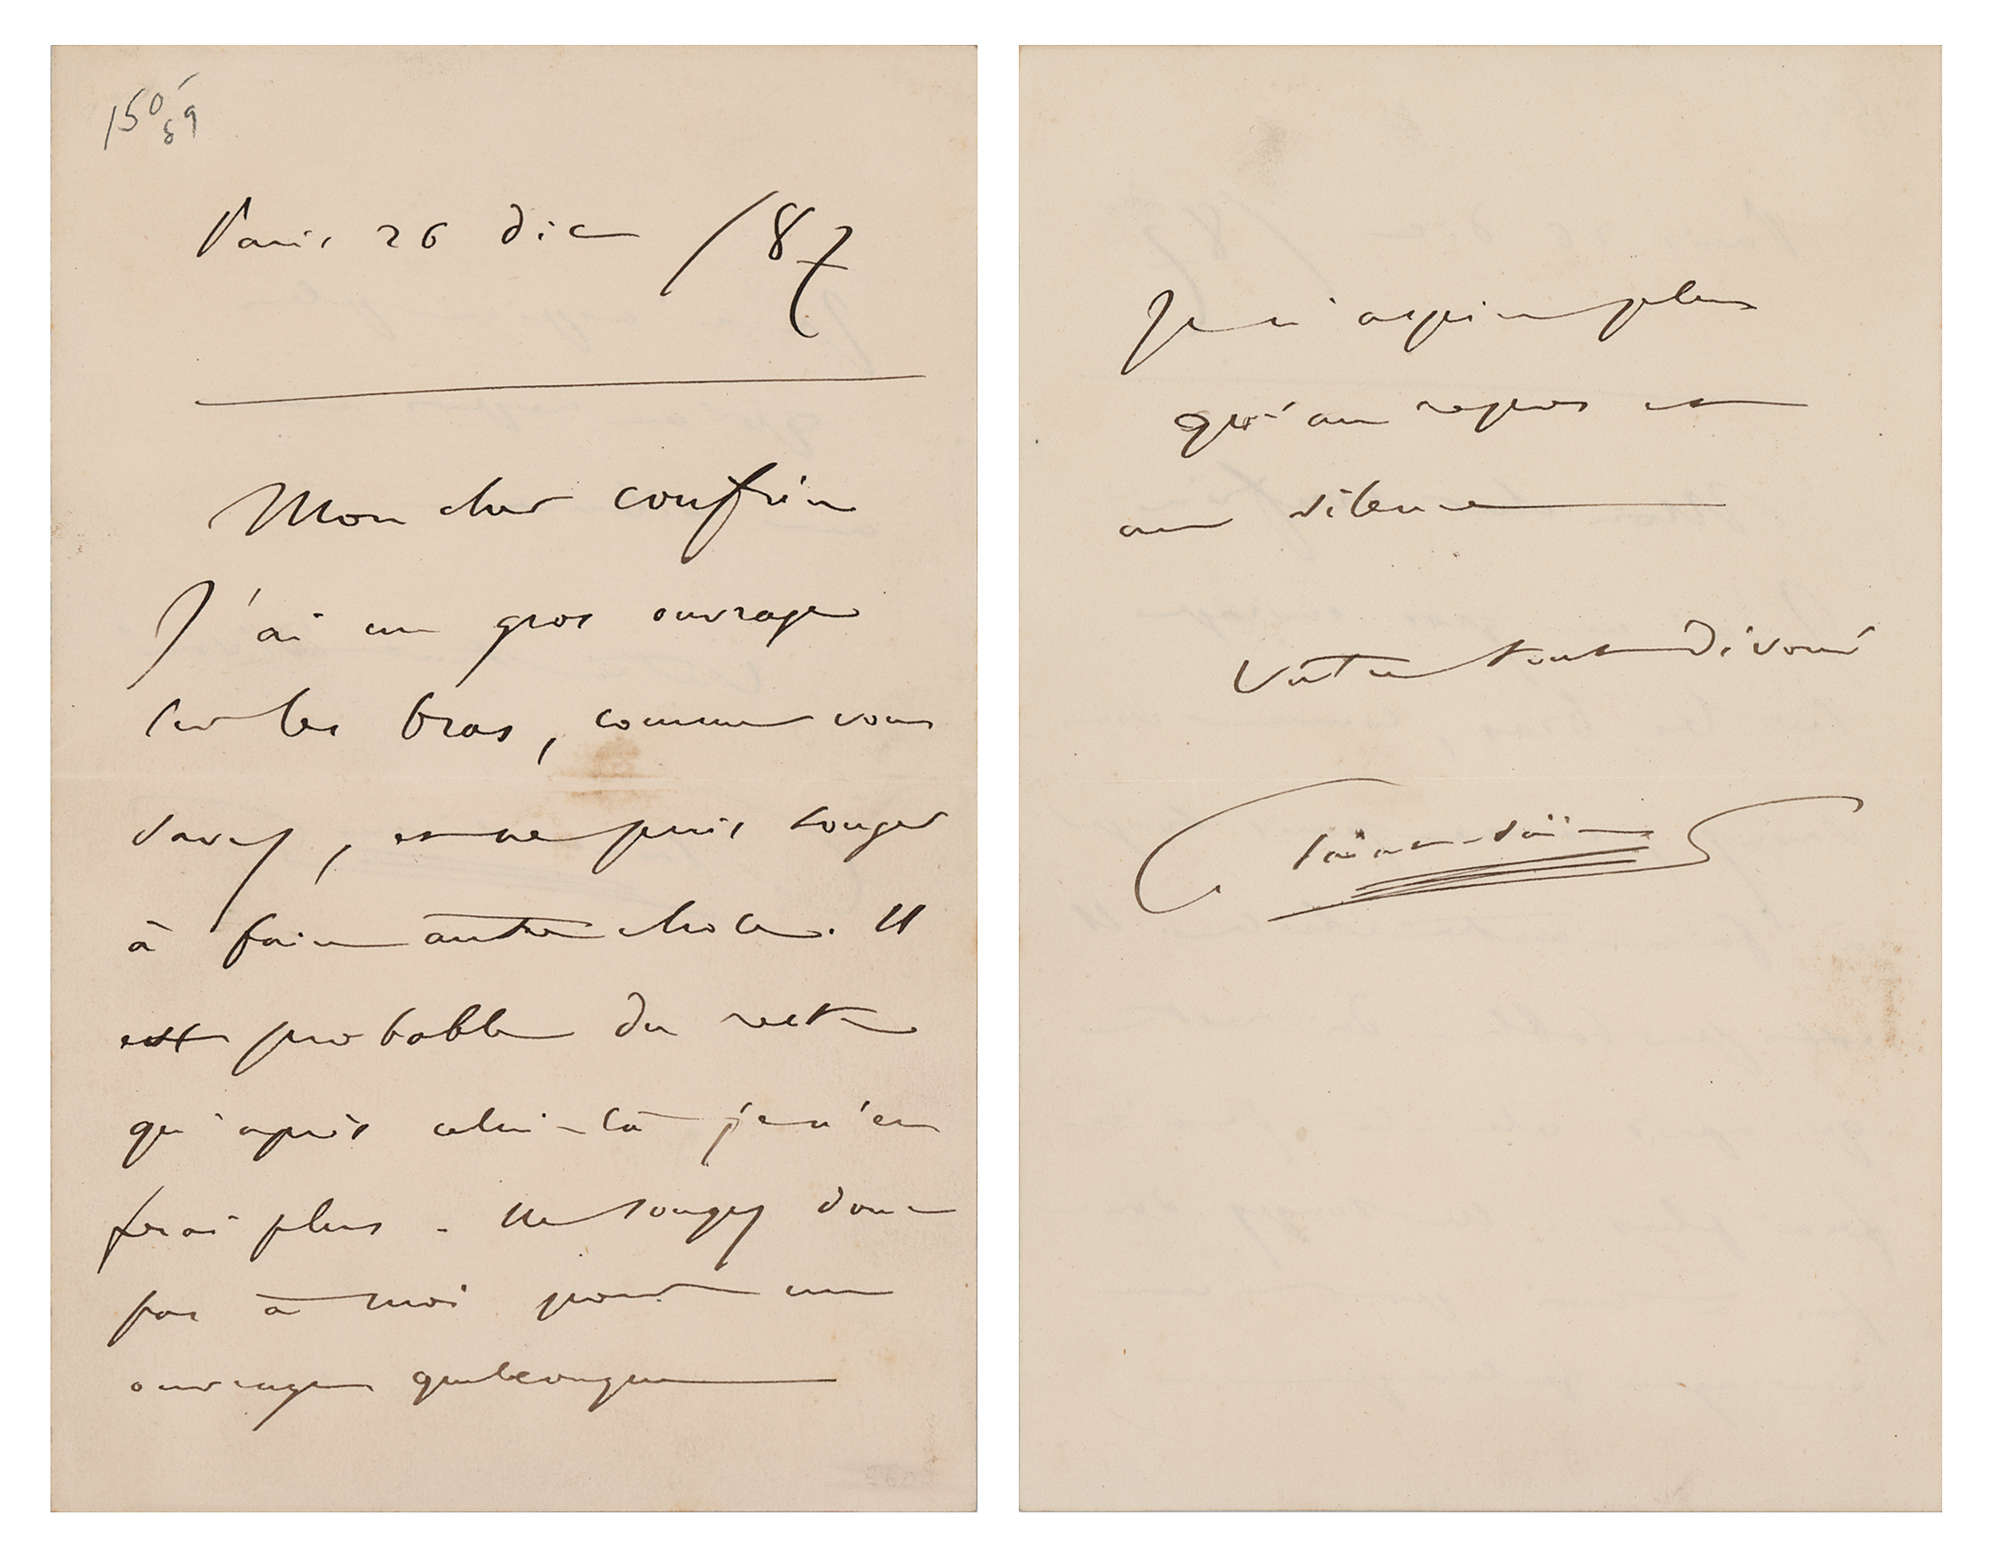 150
89
Paris 26 déc /87
Mon cher confrère
J'ai un gros ouvrage
sur les bras, comme vous
savez, et ne puis songer
à faire autre chose. Il
est probable du reste
qu'après celui-là je n'en
ferai plus. Ne songez donc
pas à moi pour un
ouvrage quelconque
Je n'aspire plus
qu'au repos et
au silence
Votre tout dévoué
C. Saint-Saëns